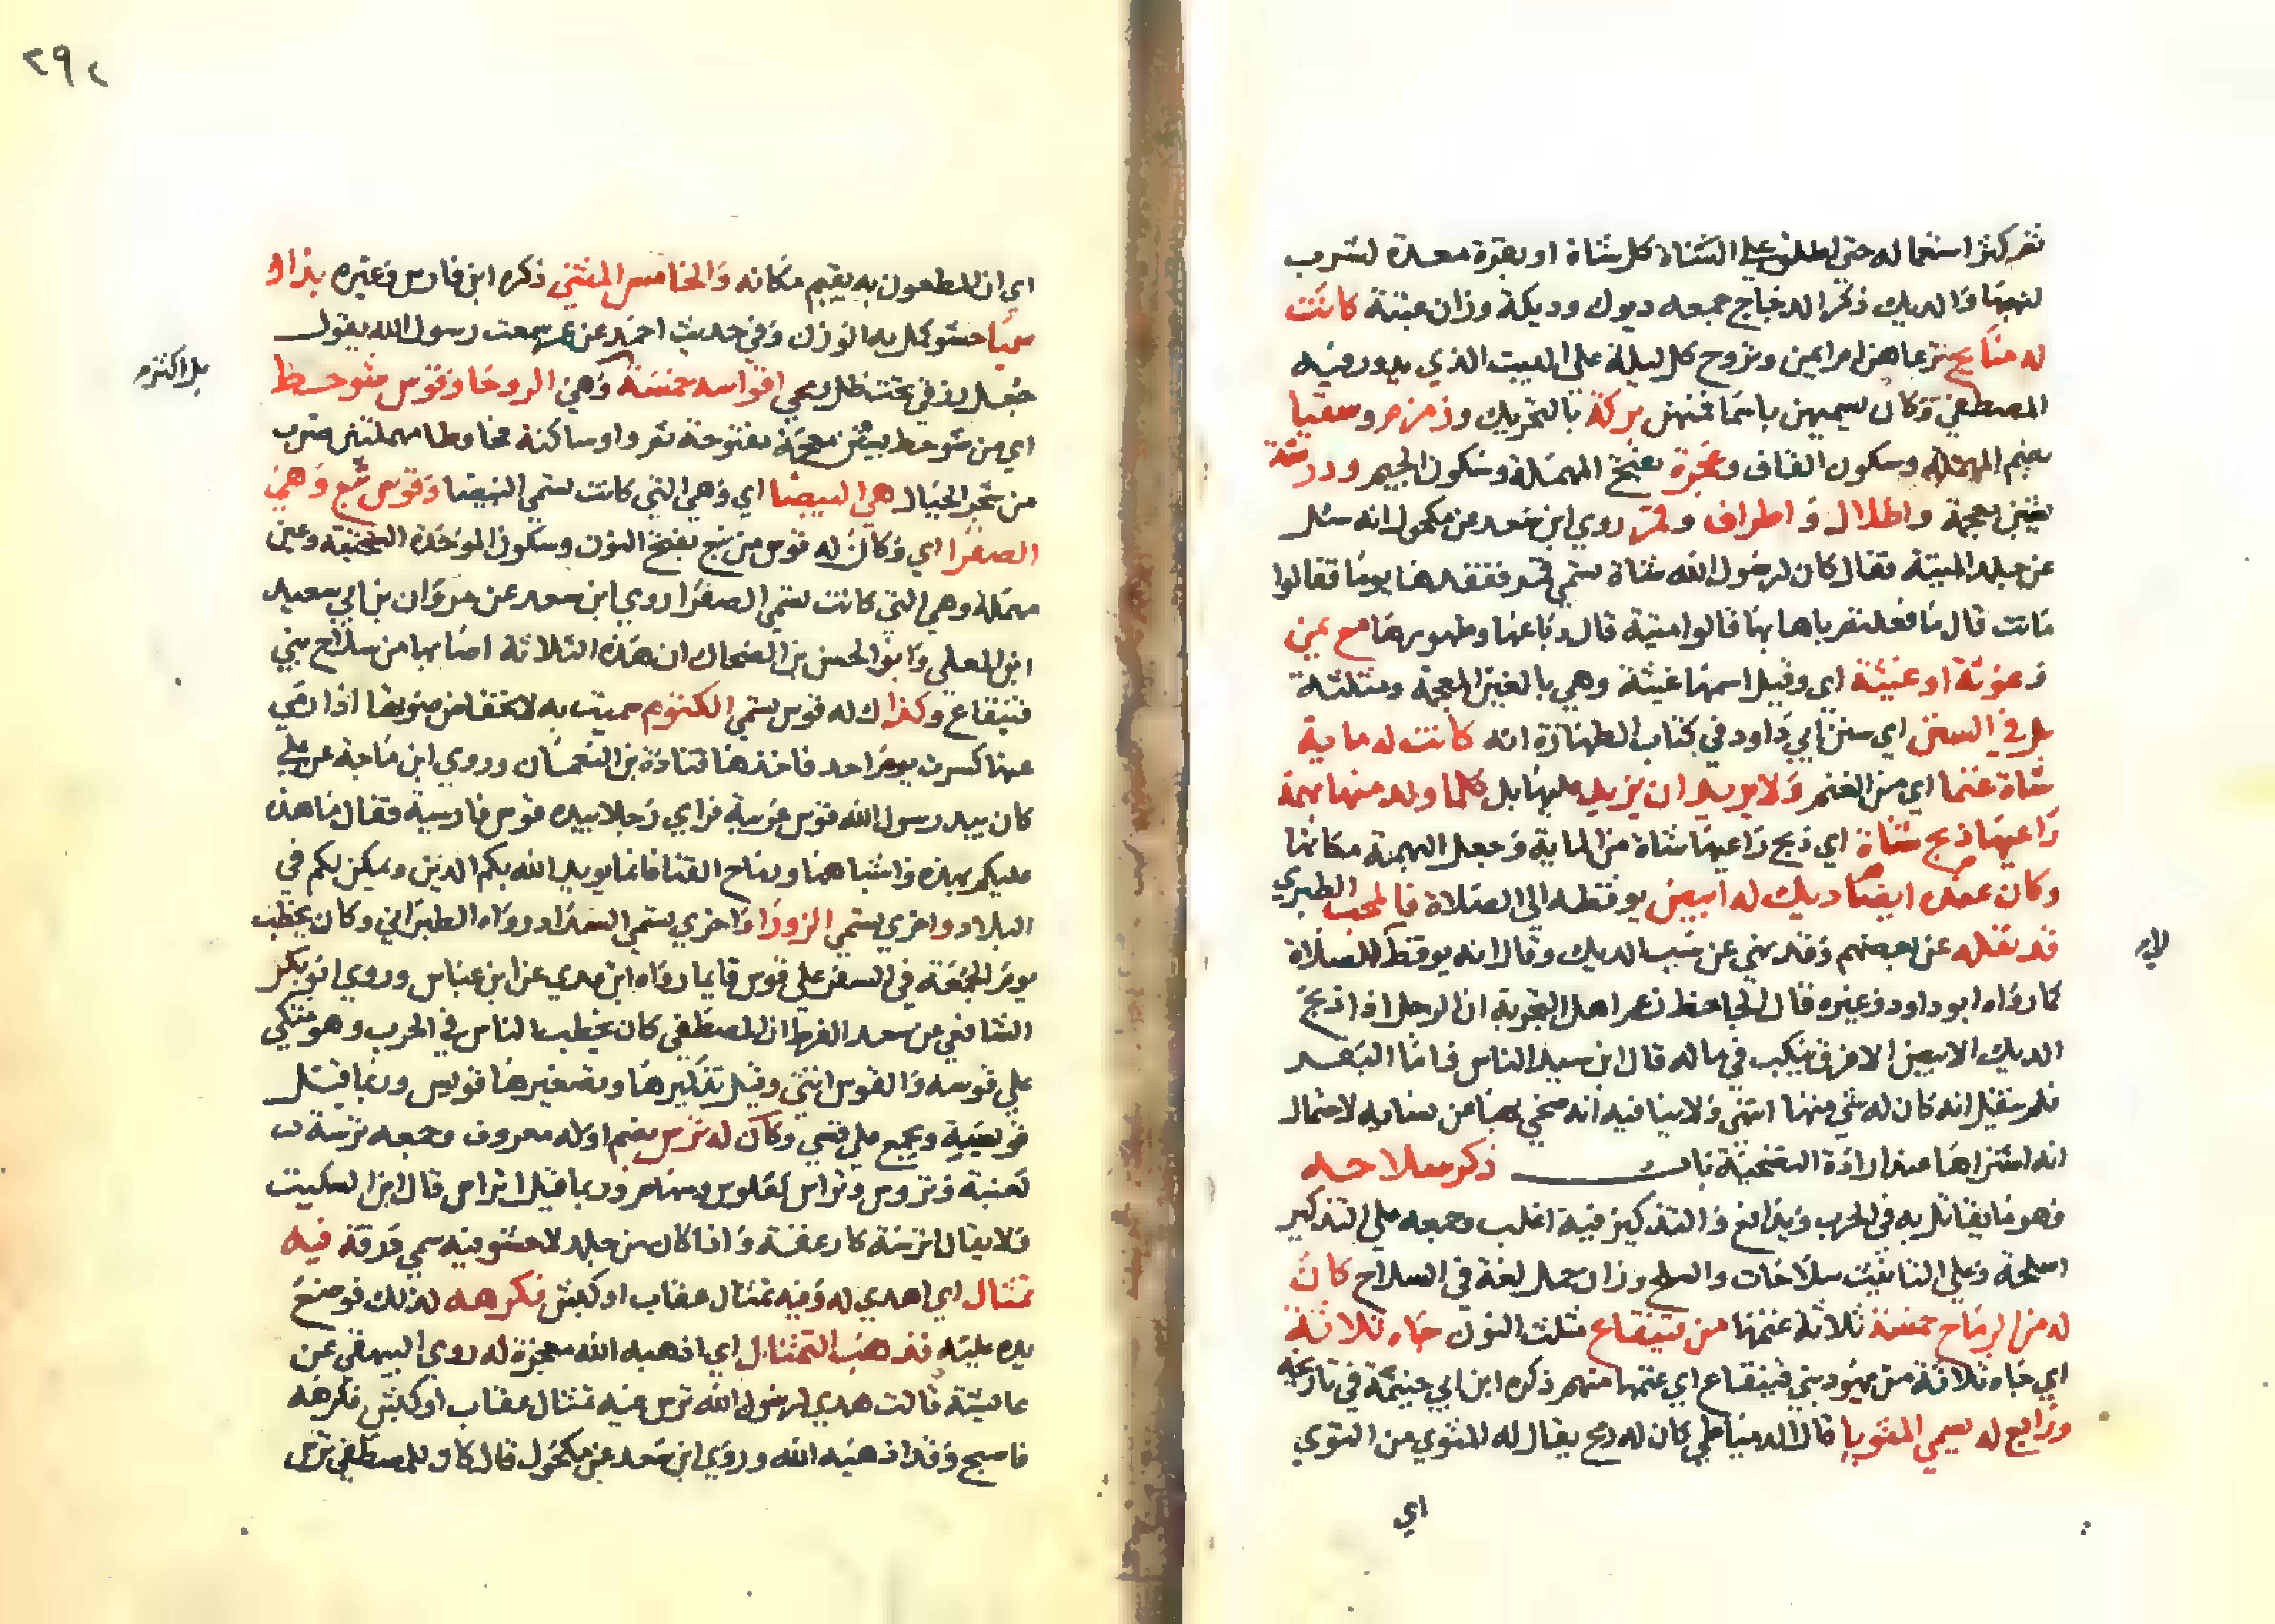 ثم كثر استعماله حتى اطلق على الشاة كل شاة او بقرة معدة لشرب
لبنها والديك ذكر الدجاج جمعه ديوك وديكة وزان عنبة كانت
له منايح ترعاهن ام ايمن وتروح كل ليلة على البيت الذي يدور فيه
المصطفي وكان يسميهن باسما فمنهن بركة بالتحريك وزمزم وسقيا
بضم المهملة وسكون القاف وعجرة بفتح المهملة وسكون الجيم وورشة
بشين معجمة واطلال واطراف وقمر روي ابن سعد عن مكحول انه سئل
عن جلد الميتة فقال كان لرسول الله شاة تسمي قمر ففقدها يوما فقالوا
ماتت قال ما فعلتم باهابها قالوا ميتة قال دباغها وطهورها مع يمن
وغوثة او غيثة اي وقيل اسمها غيثة وهي بالغين المعجمة ومثلثة
بل في السنن اي سنن ابي داود في كتاب الطهارة انه كانت له ماية
شاة غنما اي من الغنم ولا يريد ان يزيد عليها بل كلما ولد منها بهمة
راعيها ذبح شاة اي ذبح راعيها شاة من الماية وجعل البهمة مكانها
وكان عنده ايضا ديك له ابيض يوقظه الي الصلاة فالمحب الطبري
قد نقله عن بعضهم وقد نهي عن سب الديك وقال انه يوقظ للصلاة
لا
كما رواه ابو داود وغيره قال الجاحظ زعم اهل التجربة ان الرجل اذا ذبح
الديك الابيض الافرق ينكب في ماله قال ابن سيد الناس فاما البقر
فلم ينقل انه كان له شي منها انتهي ولا ينافيه انه ضحي بها عن نسايه لاحتمال
انه اشتراها عند ارادة التضحية باب ذكر سلاحه
وهو ما يقاتل به في الحرب ويدافع والتذكير فيه اغلب وجمعه علي التذكير
اسلحة وعلي التانيث سلاحات والسلح وزان حمل لغة في السلاح كان
له من الرماح خمسة ثلاثة غنمها من قينقاع مثلث النون جاه ثلاثة
اي جاه ثلاثة من يهود بني قينقاع اي غنمها منهم ذكره ابن ابي خيثمة في تاريخه
ورابع له يسمي المثويا قال الدمياطي كان له رمح يقال له المثوي من الثوي
اي
٢٩٢
اي ان المطعون به يقيم مكانه والخامس المثني ذكره ابن فارس وغيره بذا او
سميا حشو كمل به الوزن وفي حديث احمد عن عمر سمعت رسول الله يقول
جعل رزقي تحت ظل رمحي اقواسه خمسة وهي الروحا وقوس شوحط
بل اكثر
اي من شوحط بشين معجمة مفتوحة ثم واو ساكنة فحا وطا مهملتين ضرب
من شجر الجبال هي البيضا اي وهي التي كانت تسمي البيضا وقوس نبع وهي
الصفرا اي وكان له قوس من نبع بفتح النون وسكون الموحدة التحتية وعين
مهملة وهي التي كانت تسمي الصفرا روي ابن سعد عن مروان بن ابي سعيد
ابن المعلي وابو الحسن بن الضحاك ان هذه الثلاثة اصابها من سلاح بني
قينقاع وكذاك له قوس يسمي الكتوم سميت به لانخفاض صوتها اذا رمي
عنها كسرت يوم احد فاخذها قتادة بن النعمان وروي ابن ماجة عن علي
كان بيد رسول الله قوس عربية فراي رجلا بيده قوس فارسية فقال ما هذه
عليكم بهذه واشباهها ورماح القنا فانما يويد الله بكم الدين ويمكن لكم في
البلاد واخري يسمي الزورا واخري يسمي السدا رواه الطبراني وكان يخطب
يوم الجمعة في السفر علي قوس قايما رواه ابن عدي عن ابن عباس وروي ابو بكر
الشافعي عن سعد القرظ ان المصطفي كان يخطب الناس في الحرب وهو متكي
علي قوسه والقوس انثي وقيل تذكيرها وتصغيرها قويس وربما قيل
قويسية ويجمع علي قسي وكان له ترس بضم اوله معروف وجمعه ترسة ك
لعنبة وتروس وتراس كفلوس وسهام وربما قيل اتراس قال ابن السكيت
ولا يقال اترسة كارغفة واذا كان من جلد لا حشو فيه سمي درقة فيه
تمثال اي اهدي له وفيه تمثال عقاب او كبش فكرهه لذلك فوضع
يده عليه فذهب التمثال اي اذهبه الله معجزة له روي البيهقي عن
عايشة قالت هدي لرسول الله ترس فيه تمثال عقاب او كبش فكرهه
فاصبح وقد اذهبه الله وروي ابن سعد عن مكحول قال كان للمصطفي ترس